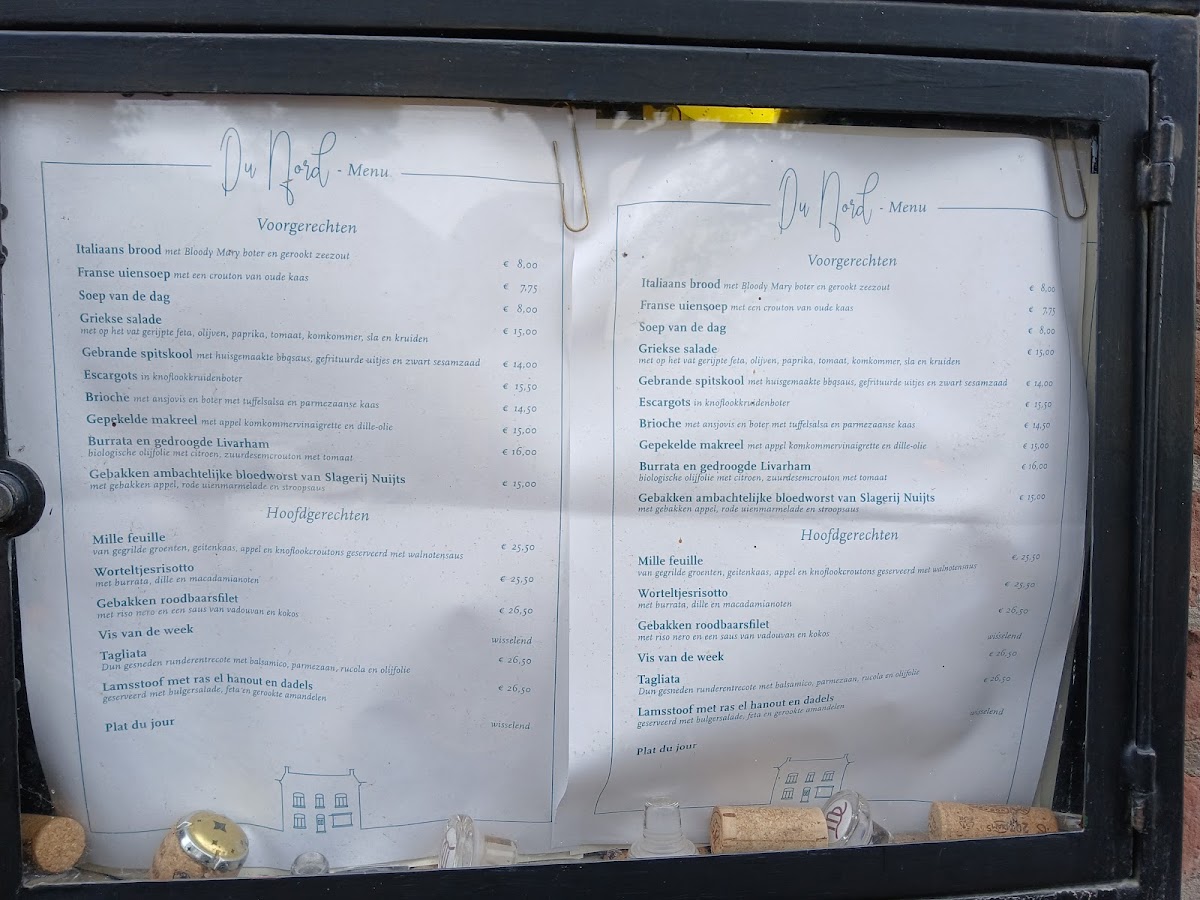 Du Nord - Menu
Voorgerechten
Italiaans brood met Bloody Mary boter en gerookt zeezout € 8,00
Franse uiensoep met een crouton van oude kaas € 7,75
Soep van de dag € 8,00
Griekse salade € 15,00
met op het vat gerijpte feta, olijven, paprika, tomaat, komkommer, sla en kruiden
Gebrande spitskool met huisgemaakte bbqsaus, gefrituurde uitjes en zwart sesamzaad € 14,00
Escargots in knoflookkruidenboter € 15,50
Brioche met ansjovis en boter met tuffelsalsa en parmezaanse kaas € 14,50
Gepekelde makreel met appel komkommervinaigrette en dille-olie € 15,00
Burrata en gedroogde Livarham € 16,00
biologische olijfolie met citroen, zuurdesemcrouton met tomaat
Gebakken ambachtelijke bloedworst van Slagerij Nuijts € 15,00
met gebakken appel, rode uienmarmelade en stroopsaus
Hoofdgerechten
Mille feuille € 25,50
van gegrilde groenten, geitenkaas, appel en knoflookcroutons geserveerd met walnotensaus
Worteltjesrisotto € 25,50
met burrata, dille en macadamianoten
Gebakken roodbaarsfilet € 26,50
met riso nero en een saus van vadouvan en kokos
Vis van de week wisselend
Tagliata € 26,50
Dun gesneden runderentrecote met balsamico, parmezaan, rucola en olijfolie
Lamsstoof met ras el hanout en dadels € 26,50
geserveerd met bulgersalade, feta en gerookte amandelen
Plat du jour wisselend
Du Nord - Menu
Voorgerechten
Italiaans brood met Bloody Mary boter en gerookt zeezout € 8,00
Franse uiensoep met een crouton van oude kaas € 7,75
Soep van de dag € 8,00
Griekse salade € 15,00
met op het vat gerijpte feta, olijven, paprika, tomaat, komkommer, sla en kruiden
Gebrande spitskool met huisgemaakte bbqsaus, gefrituurde uitjes en zwart sesamzaad € 14,00
Escargots in knoflookkruidenboter € 15,50
Brioche met ansjovis en boter met tuffelsalsa en parmezaanse kaas € 14,50
Gepekelde makreel met appel komkommervinaigrette en dille-olie € 15,00
Burrata en gedroogde Livarham € 16,00
biologische olijfolie met citroen, zuurdesemcrouton met tomaat
Gebakken ambachtelijke bloedworst van Slagerij Nuijts € 15,00
met gebakken appel, rode uienmarmelade en stroopsaus
Hoofdgerechten
Mille feuille € 25,50
van gegrilde groenten, geitenkaas, appel en knoflookcroutons geserveerd met walnotensaus
Worteltjesrisotto € 25,50
met burrata, dille en macadamianoten
Gebakken roodbaarsfilet € 26,50
met riso nero en een saus van vadouvan en kokos
Vis van de week wisselend
Tagliata € 26,50
Dun gesneden runderentrecote met balsamico, parmezaan, rucola en olijfolie
Lamsstoof met ras el hanout en dadels € 26,50
geserveerd met bulgersalade, feta en gerookte amandelen
Plat du jour wisselend